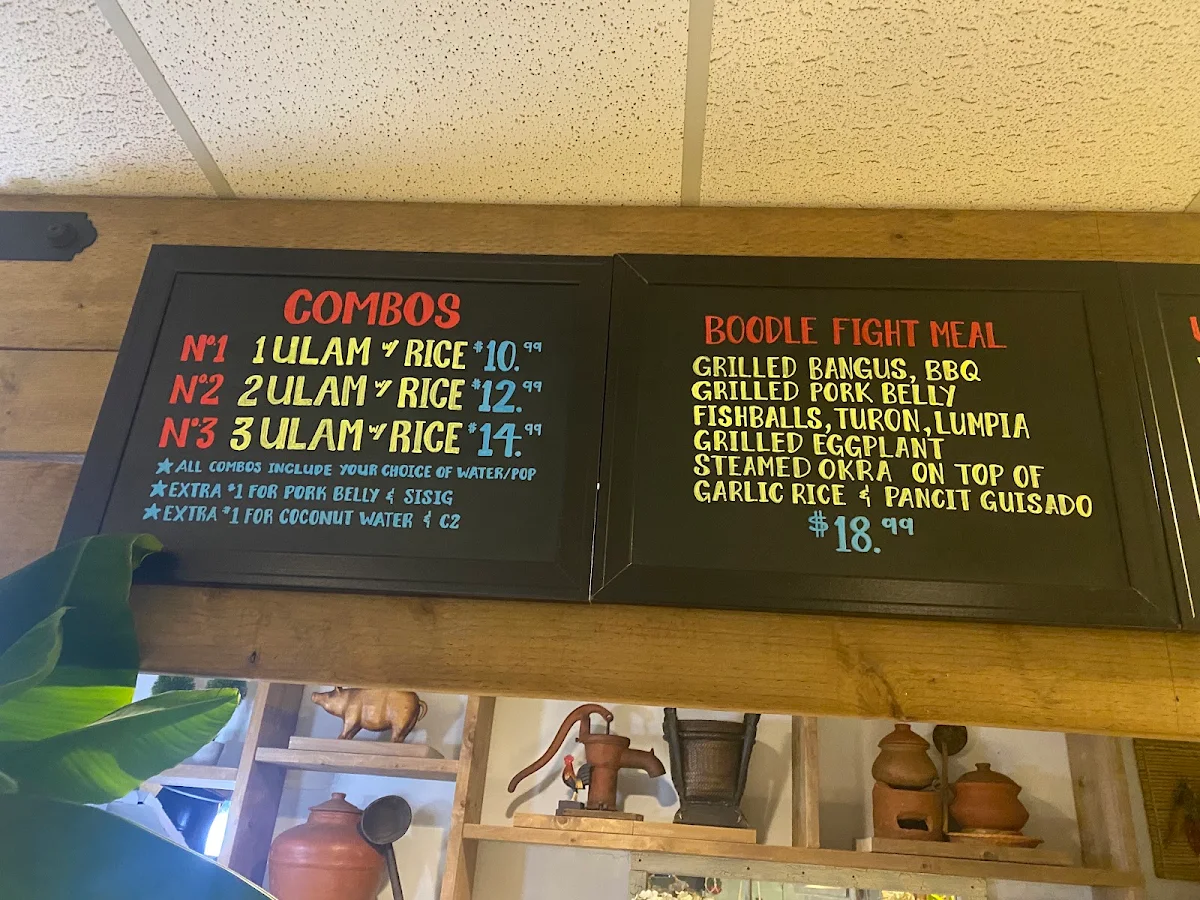 COMBOS
Nº1 1 ULAM w/ RICE $10.99
Nº2 2 ULAM w/ RICE $12.99
Nº3 3 ULAM w/ RICE $14.99
★ALL COMBOS INCLUDE YOUR CHOICE OF WATER/POP
★EXTRA $1 FOR PORK BELLY & SISIG
★EXTRA $1 FOR COCONUT WATER & C2
BOODLE FIGHT MEAL
GRILLED BANGUS, BBQ
GRILLED PORK BELLY
FISHBALLS, TURON, LUMPIA
GRILLED EGGPLANT
STEAMED OKRA ON TOP OF
GARLIC RICE & PANCIT GUISADO
$18.99